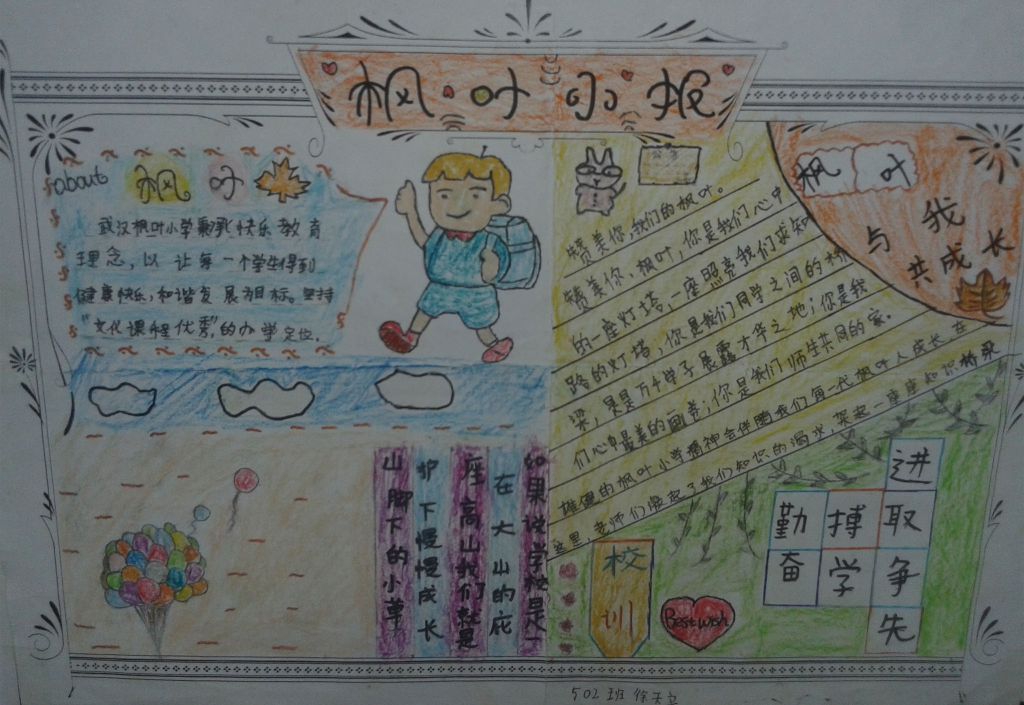 枫叶小报
about 枫叶
武汉枫叶小学秉承快乐教育
理念,以让每一个学生得到
健康快乐,和谐发展为目标。坚持
"文化课程优秀"的办学定位.
枫叶
与我
共成长
赞美你,我们的枫叶。
赞美你,枫叶,你是我们心中
的一座灯塔,一座照亮我们求知
路的灯塔,你是我们同学之间的桥
梁,是是万千学子展露才华之地;你是我
们心中最美的画卷;你是我们师生共同的家。
雄健的枫叶小学精神会伴随我们每一代枫叶人成长,在
这里,老师们激起了我们知识的渴求,架起一座座知识桥梁
如果说学校是一
座高山我们就是
在大山的庇
护下慢慢成长
山脚下的小草
校训
Best wish
勤奋
搏学
进取
争先
502班 徐天